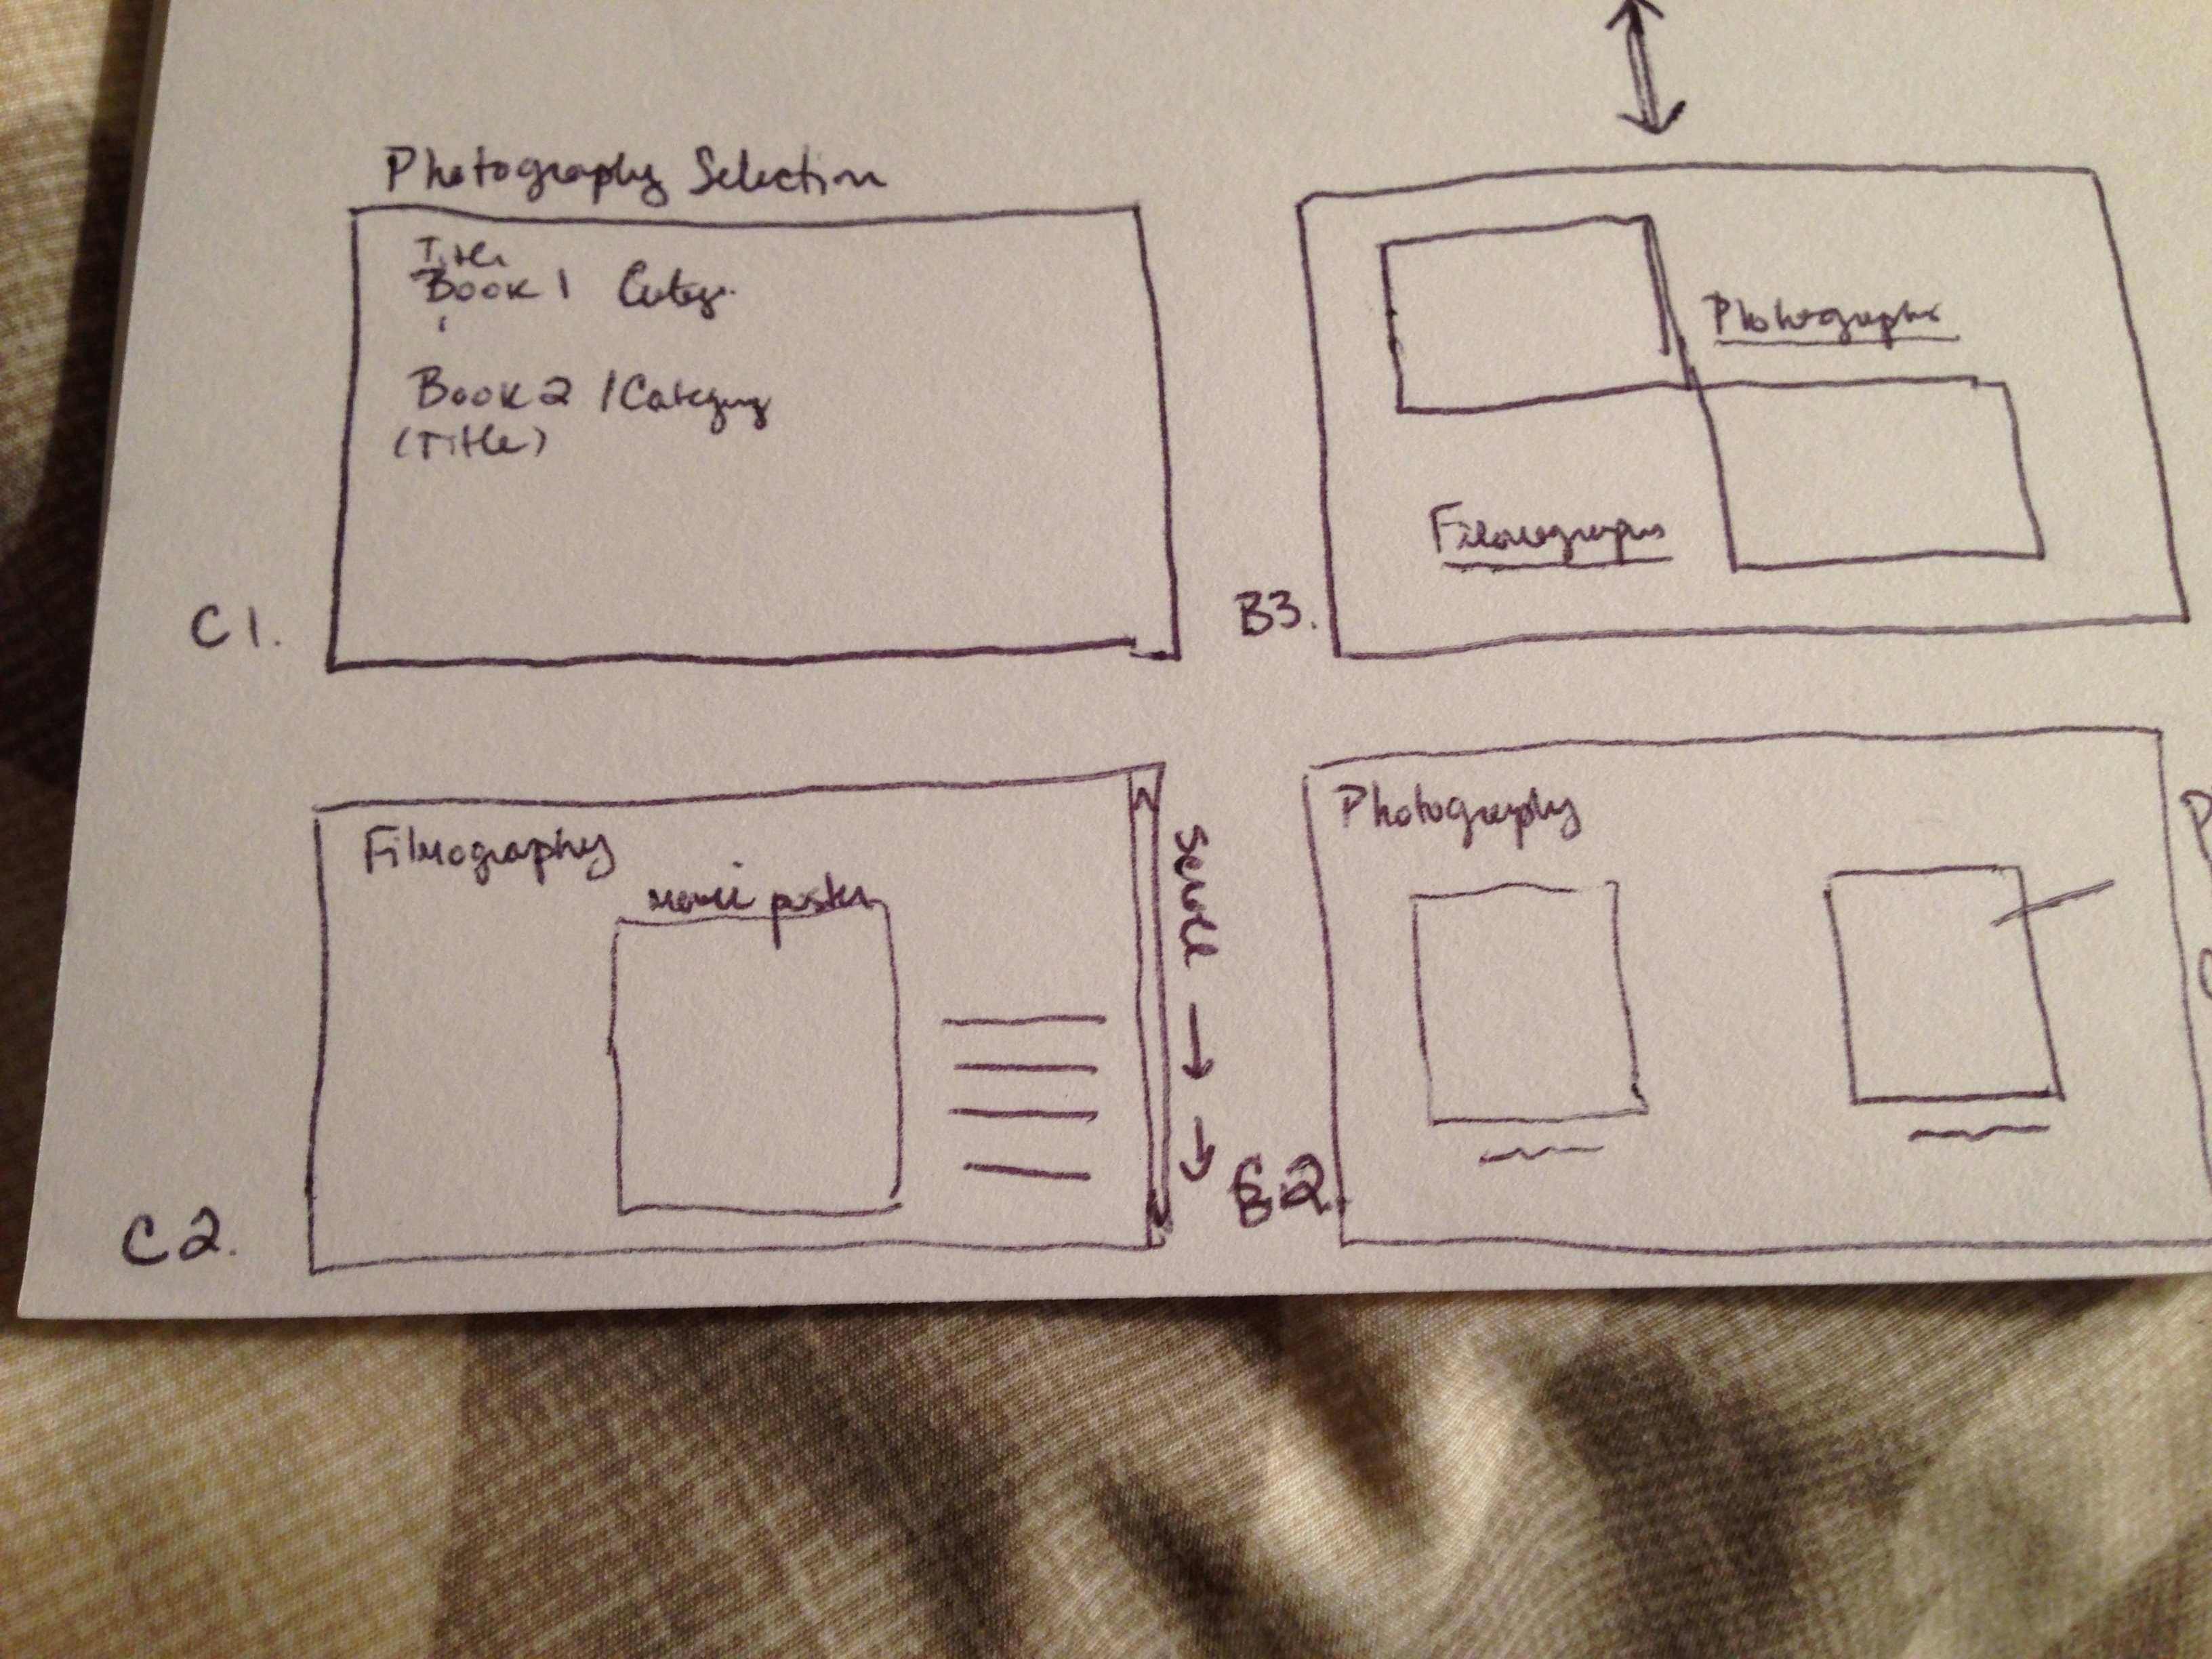 Photography Selection
Title
Book 1 Categ.
Book 2 / Category
(Title)
C1.
Photography
Filmography
B3.
Filmography
movie poster
Scroll
C2.
Photography
B2.